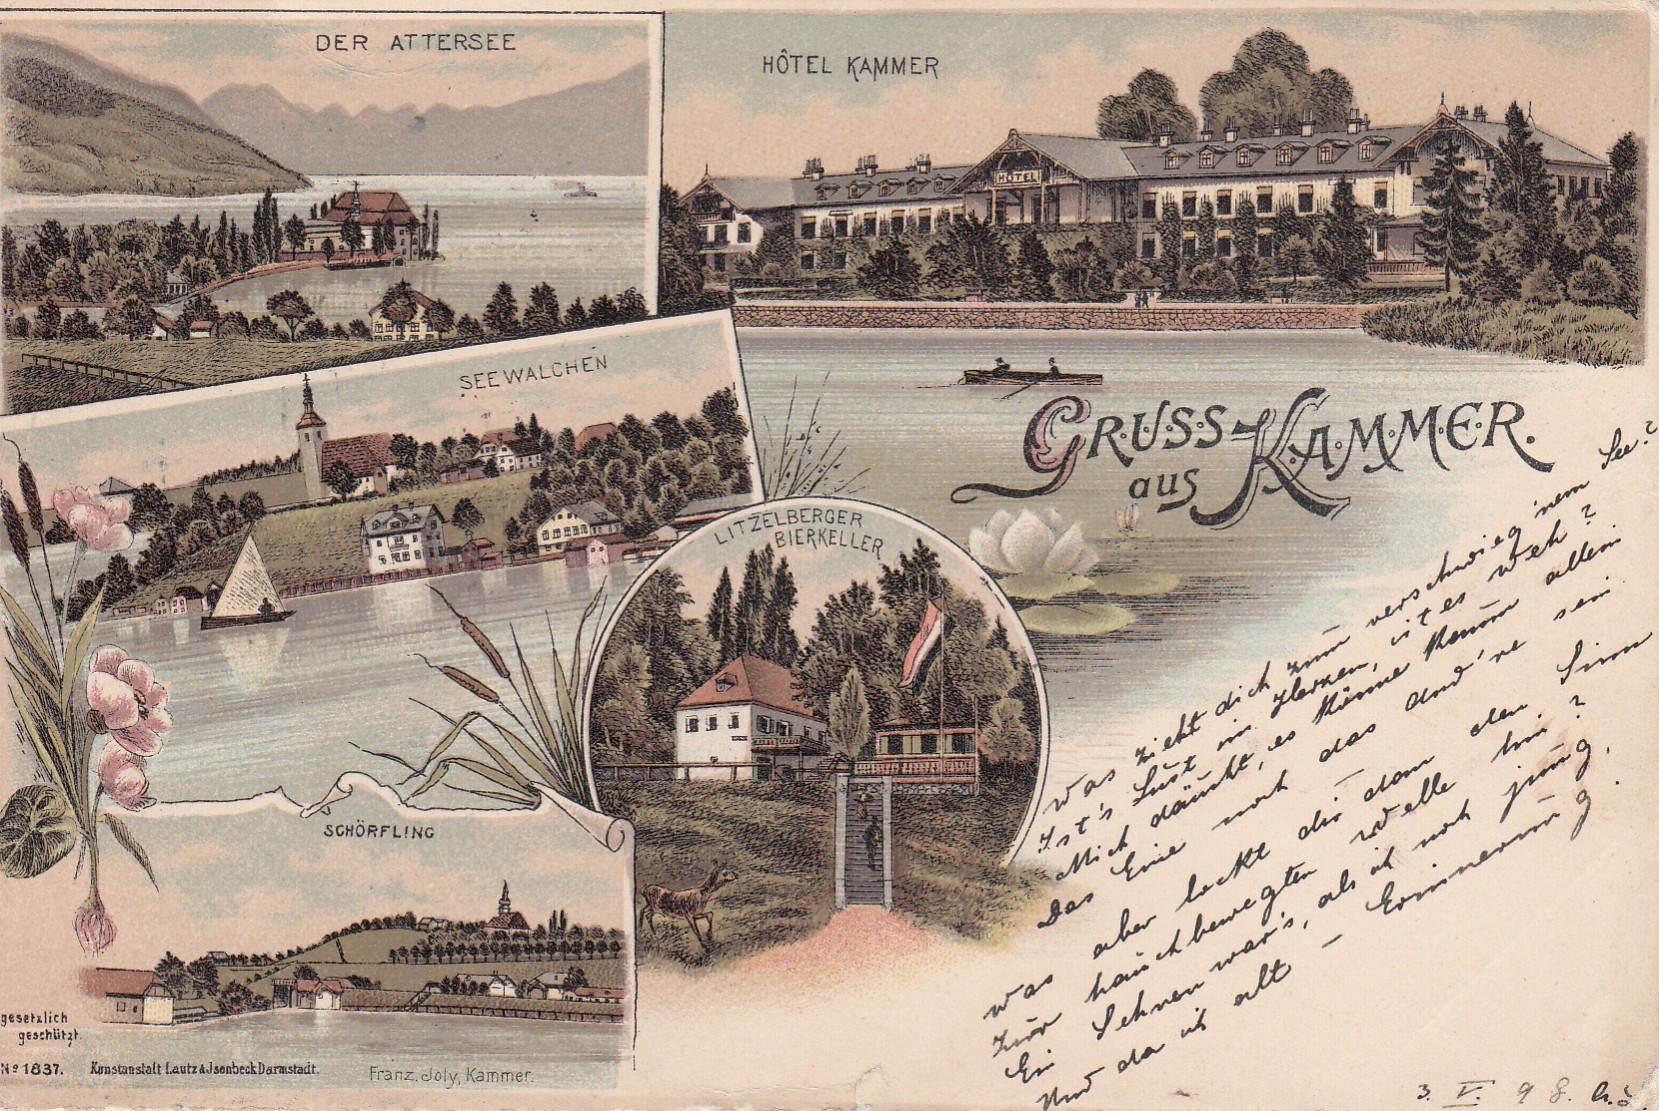 DER ATTERSEE
HÔTEL KAMMER
HOTEL
SEEWALCHEN
GRUSS
aus KAMMER.
LITZELBERGER
BIERKELLER
SCHÖRFLING
was zieht dich zum verschwieg'nem See?
Ist's Lust im Herzen, ist es Weh?
Mich däucht, es könne kaum allein
Das Eine noch das and're sein
was aber lockt dir dann den Sinn
zur hauchbewegten Welle hin?
Ein Sehnen war's, als ich noch jung,
Und da ich alt – Erinnerung.
3. V. 98.
gesetzlich
geschützt.
Nº 1837. Kunstanstalt Lautz & Jsenbeck Darmstadt.
Franz Joly, Kammer.